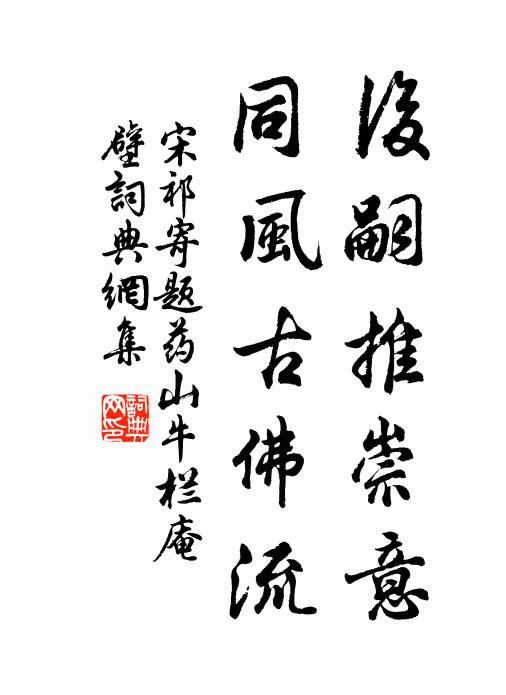 後嗣推崇意
同風古佛流
宋祁寄题药山牛栏庵
壁詞典網集
詞典网印